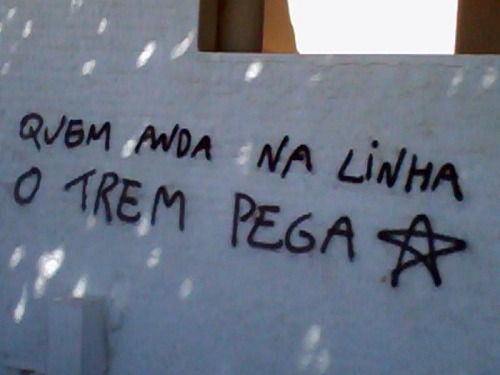 QUEM ANDA NA LiNHA
O TREM PEGA